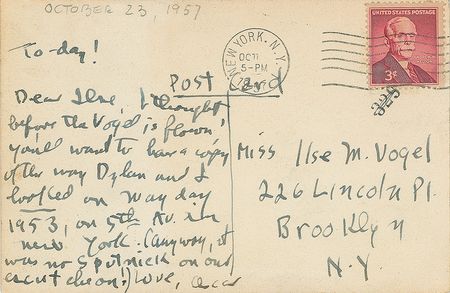 OCTOBER 23, 1957
UNITED STATES POSTAGE
3¢
NEW YORK, N.Y.
OCT
5-PM
325
To-day!
Post Card
Dear Ilse, I thought
before the Vogel is flown,
you'll want to have a copy
of the way Dylan and I
looked on May day
1953, on 5th Av. in
new York. (anyway, it
was no Sputnick on our
escutcheon!) Love,
Miss Ilse M. Vogel
226 Lincoln Pl.
Brooklyn
N.Y.